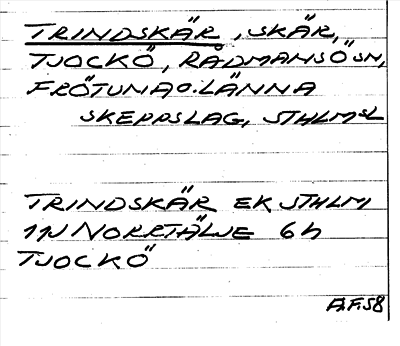 TRINDSKÄR, SKÄR,
TJOCKÖ, RÅDMANSÖ SN,
FRÖTUNA O. LÄNNA
SKEPPSLAG, STHLMS L
TRINDSKÄR EK STHLM
11J NORRTÄLJE 6h
TJOCKÖ
A.F. 58